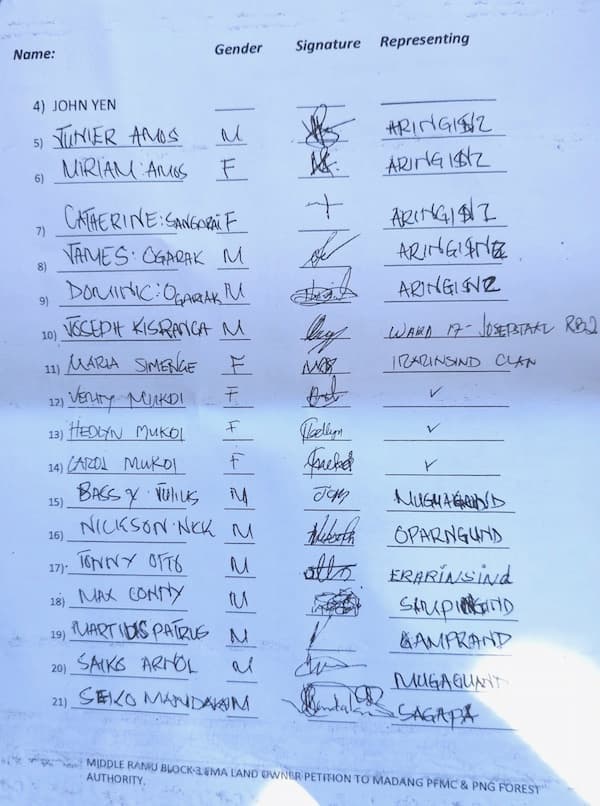 Name: Gender Signature Representing
4) JOHN YEN
5) JUNIER AMOS M ARINGISIZ
6) MIRIAM: AMOS F ARINGISIZ
7) CATHERINE: SANGORAI F ARINGISIZ
8) JAMES: OGARAK M ARINGISIZ
9) DOMINIC: OGARAK M ARINGISIZ
10) JOSEPH KISRANGA M WARD 17- JOSEPSTAAL
11) MARIA SIMENGE F IRARINSIND CLAN
12) MUKOI F ✓
13) HEDLYN MUKOI F ✓
14) CAROL MUKOI F ✓
15) JULIUS M
16) NICKSON. NICK M OPARNGUND
17) TONNY OTTO M ERARINSINd
18) MAX CONNY M
19) PATRUS M
20) SAIKO ARNOL M MUGAGUND
21) SEIKO M SAGAPA
MIDDLE RAMU BLOCK-3 FMA LAND OWNER PETITION TO MADANG PFMC & PNG FOREST
AUTHORITY.